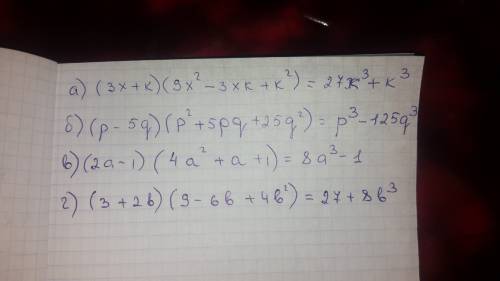 а) (3x+к)(9x² - 3xк + к²) = 27x³ + к³
б) (p - 5q)(p² + 5pq + 25q²) = p³ - 125q³
в) (2a - 1) (4a² + a + 1) = 8a³ - 1
г) (3 + 2b) (9 - 6b + 4b²) = 27 + 8b³